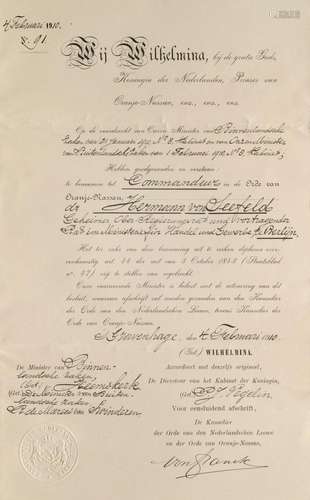 4 Februari 1910.
No. 91.
Wij Wilhelmina, bij de gratie Gods,
Koningin der Nederlanden, Prinses van
Oranje-Nassau, enz., enz., enz.
Op de voordracht van Onzen Minister van Binnenlandsche
Zaken van 31 Januari 1910, No. 8, Kabinet en van Onzen Minister
van Buitenlandsche Zaken van 1 Februari 1910, No. 8, Kabinet;
Hebben goedgevonden en verstaan:
te benoemen tot Commandeur in de Orde van
Oranje-Nassau,
dr. Hermann von Seefeld
Geheimer Ober Regierungsrat und Vortragender
Rat im Ministerium für Handel und Gewerbe te Berlijn
Het ter zake van deze benoeming uit te reiken diploma over-
eenkomstig art. van de wet van October 1894 (Staatsblad
no. 47) vrij te stellen van zegelrecht.
Onze voornoemde Minister is belast met de uitvoering van dit
besluit, waarvan afschrift zal worden gezonden aan den Kanselier
der Orde van den Nederlandschen Leeuw, tevens Kanselier der
Orde van Oranje-Nassau.
's Gravenhage, den 4 Februari 1910
(Get.) WILHELMINA.
De Minister van Binnen-
landsche Zaken,
(Get.) Heemskerk
De Minister van Buiten-
landsche Zaken
(Get.) R. de Marees van Swinderen
Accordeert met deszelfs origineel,
De Directeur van het Kabinet der Koningin,
(Get.) P. J. Vegelin
Voor eensluidend afschrift,
De Kanselier
der Orde van den Nederlandschen Leeuw
en der Orde van Oranje-Nassau,